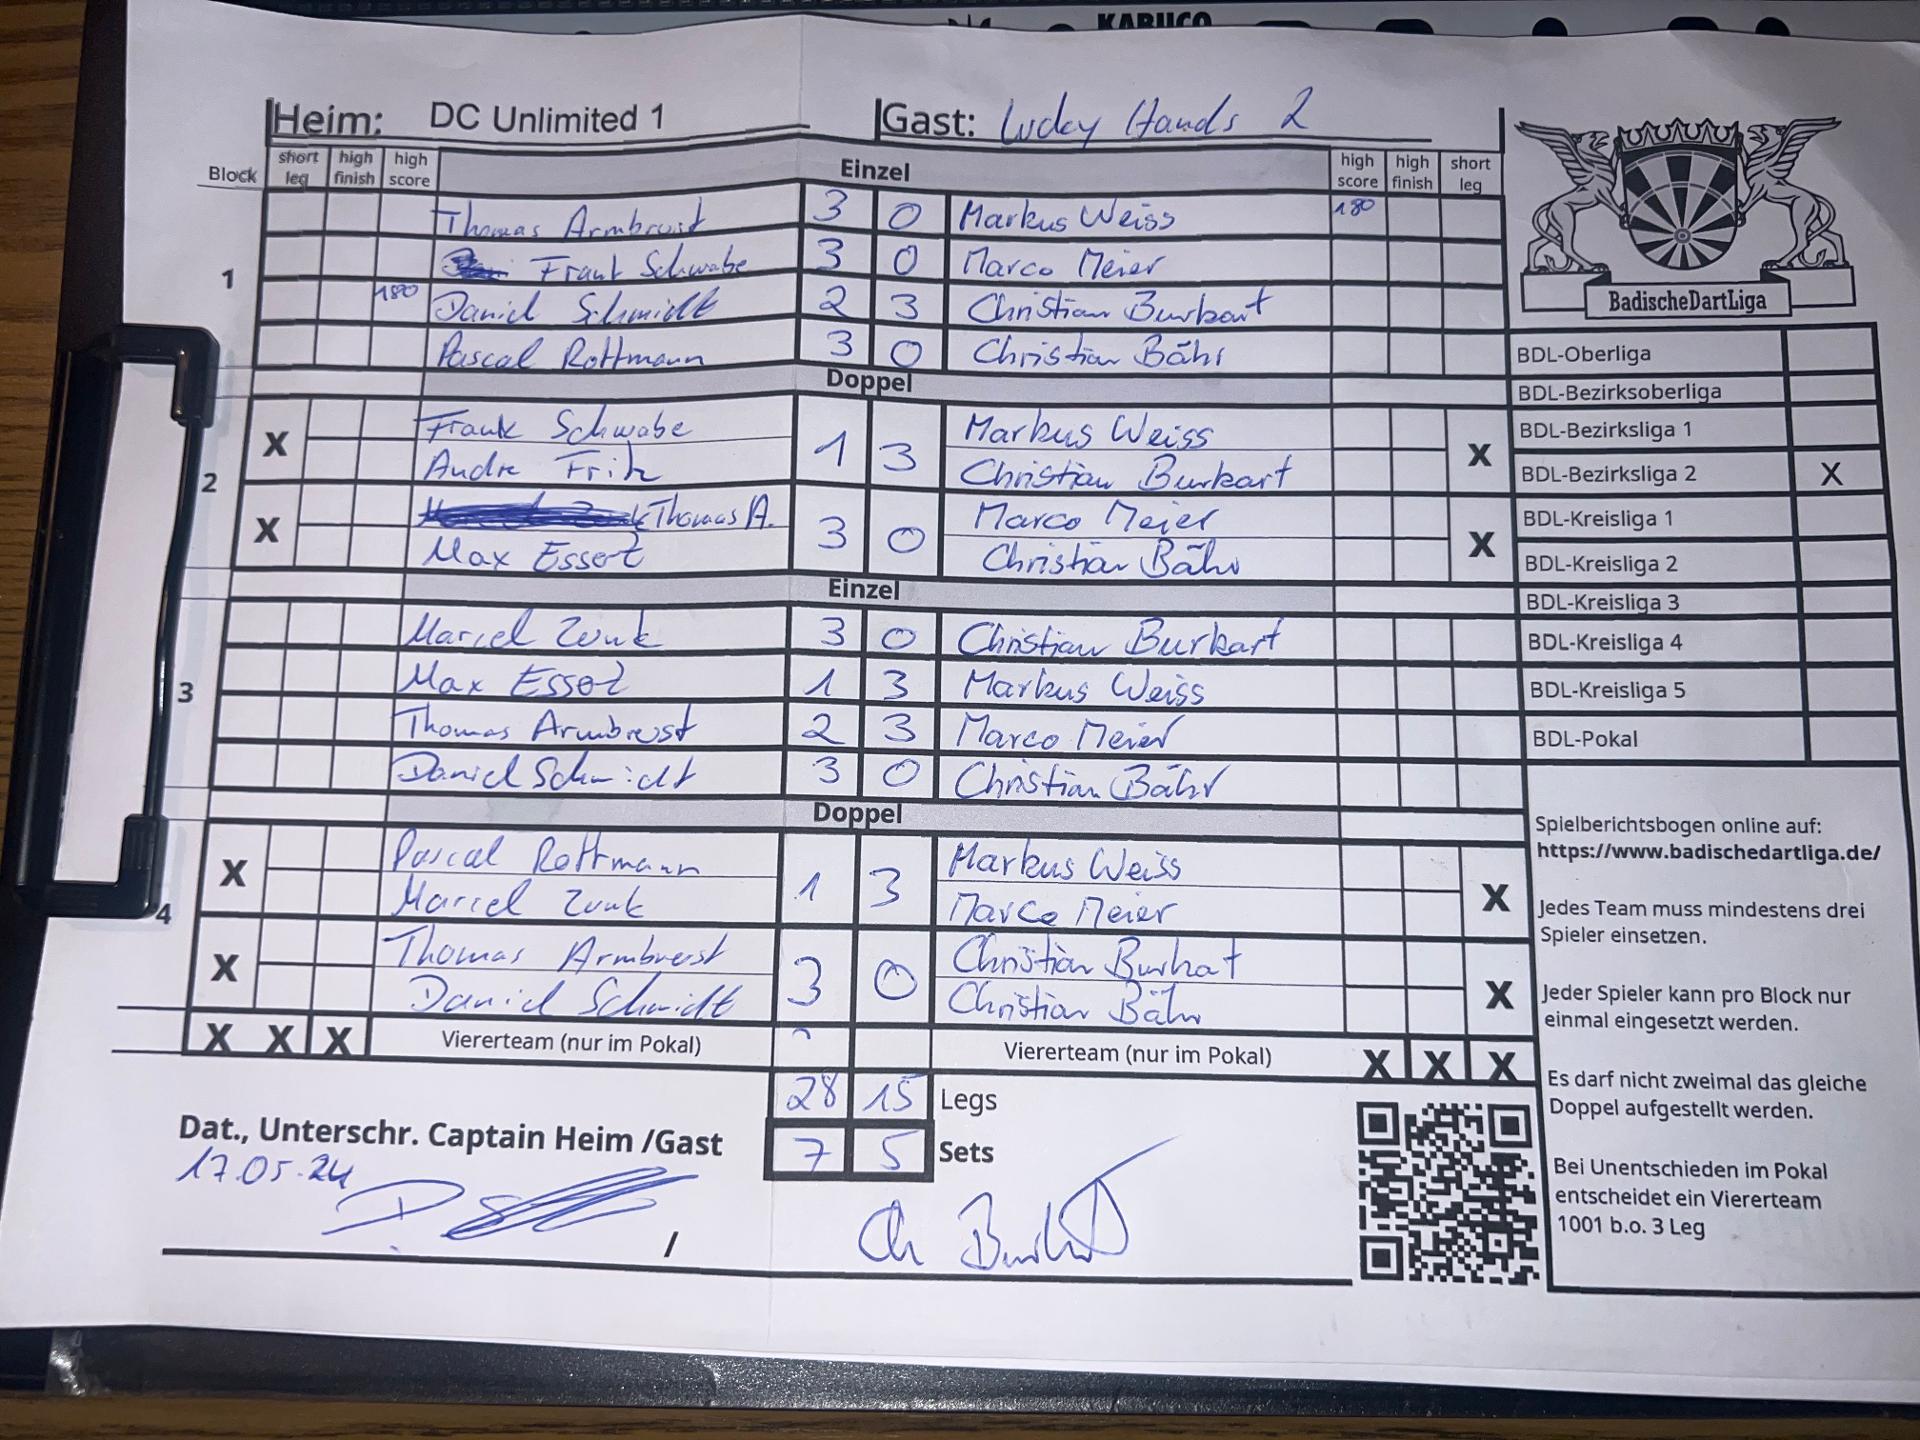 KABUCO
Heim: DC Unlimited 1 Gast: Lucky Hands 2
Block short leg high finish high score Einzel high score high finish short leg
1
Thomas Armbrust 3 0 Markus Weiss 180
Frank Schwabe 3 0 Marco Meier
180 Daniel Schmidt 2 3 Christian Burkart
Pascal Rottmann 3 0 Christian Bähr
Doppel
2
X Frank Schwabe 1 3 Markus Weiss X
Andre Fritz Christian Burkart
X Thomas A. 3 0 Marco Meier X
Max Essert Christian Bähr
Einzel
3
Marcel Zunk 3 0 Christian Burkart
Max Essert 1 3 Markus Weiss
Thomas Armbrust 2 3 Marco Meier
Daniel Schmidt 3 0 Christian Bähr
Doppel
4
X Pascal Rottmann 1 3 Markus Weiss X
Marcel Zunk Marco Meier
X Thomas Armbrust 3 0 Christian Burkat X
Daniel Schmidt Christian Bähr
X X X Viererteam (nur im Pokal) Viererteam (nur im Pokal) X X X
28 15 Legs
7 5 Sets
Dat., Unterschr. Captain Heim /Gast
17.05.24
/
Ch Burkart
BadischeDartLiga
BDL-Oberliga
BDL-Bezirksoberliga
BDL-Bezirksliga 1
BDL-Bezirksliga 2 X
BDL-Kreisliga 1
BDL-Kreisliga 2
BDL-Kreisliga 3
BDL-Kreisliga 4
BDL-Kreisliga 5
BDL-Pokal
Spielberichtsbogen online auf:
https://www.badischedartliga.de/
Jedes Team muss mindestens drei
Spieler einsetzen.
Jeder Spieler kann pro Block nur
einmal eingesetzt werden.
Es darf nicht zweimal das gleiche
Doppel aufgestellt werden.
Bei Unentschieden im Pokal
entscheidet ein Viererteam
1001 b.o. 3 Leg